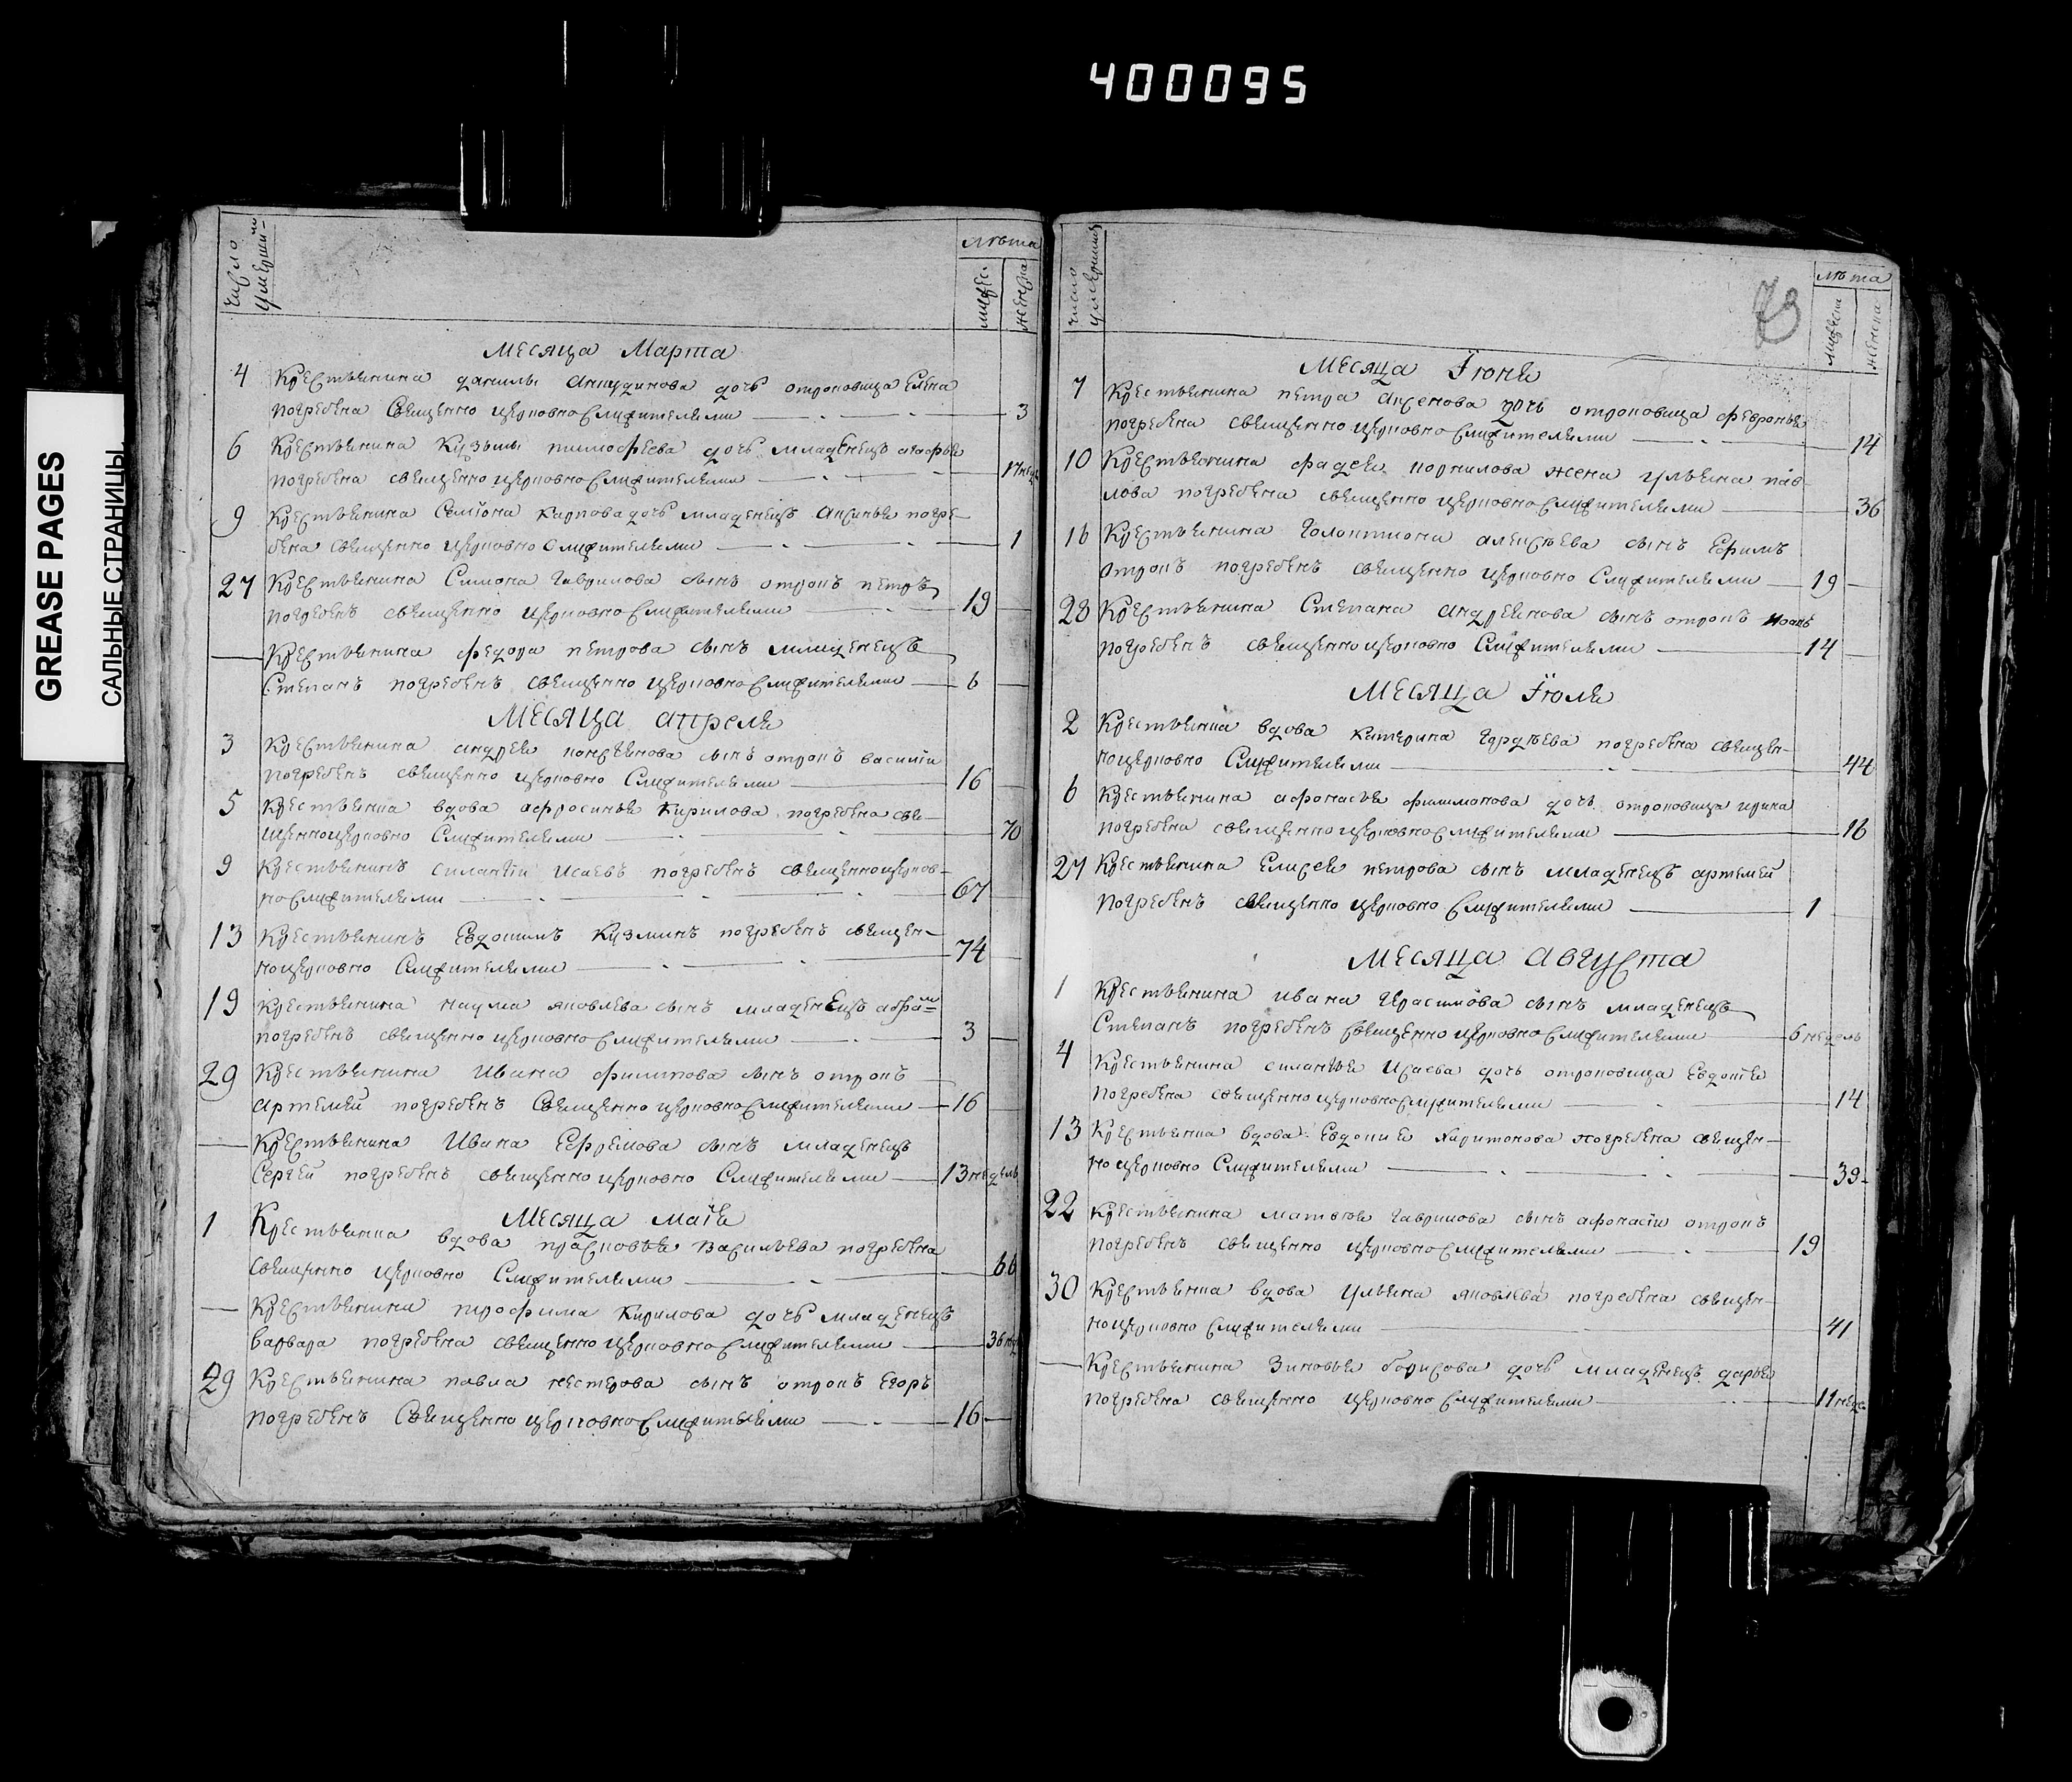 400095
GREASE PAGES
САЛЬНЫЕ СТРАНИЦЫ
число умерши
лѣта
мужес. женска
Месяца Марта
4 Крестьянина данилы анкудинова дочь отроковица Елена
погребена Священно церковно Служителями 3
6 Крестьянина Кузьмы тимофеева дочь младенецъ агафья
погребена священно церковно Служителями 17 нед
9 Крестьянина Семiона Карпова дочь младенецъ Аксинья погре-
бена священно церковно Служителями 1
27 Крестьянина Симона Гаврилова сынъ отрокъ петръ
погребенъ священно церковно Служителями 19
— Крестьянина федора петрова сынъ младенецъ
Степанъ погребенъ священно церковно Служителями 6
Месяца апреля
3 Крестьянина андрея сынъ отрокъ василiй
погребенъ священно церковно Служителями 16
5 Крестьянка вдова афросинья Кирилова погребена свя-
щенно церковно Служителями 70
9 Крестьянинъ силантiй Исаевъ погребенъ священно церков-
но Служителями 67
13 Крестьянинъ Евдокимъ Кузминъ погребенъ священ-
но церковно Служителями 74
19 Крестьянина наума яковлева сынъ младенецъ абрам
погребенъ священно церковно Служителями 3
29 Крестьянина Ивана филипова сынъ отрокъ
Артемей погребенъ Священно церковно Служителями 16
— Крестьянина Ивана Ефремова сынъ младенецъ
Сергей погребенъ священно церковно Служителями 13 недель
Месяца маiя
1 Крестьянка вдова прасковья Васильева погребена
Священно церковно Служителями 66
— Крестьянина трофима Кирилова дочь младенецъ
варвара погребена священно церковно Служителями 36 нед
29 Крестьянина павла нестерова сынъ отрокъ Егоръ
погребенъ Священно церковно Служителями 16
число умерших
73
лѣта
мужеска женска
Месяца Iюня
7 Крестьянина петра аксенова дочь отроковица февронья
погребена священно церковно Служителями 14
10 Крестьянина фадея корнилова жена ульяна пав-
лова погребена священно церковно Служителями 36
16 Крестьянина Голактиона алексѣева сынъ Ефимъ
отрокъ погребенъ священно церковно Служителями 19
28 Крестьянина Степана Андреянова сынъ отрокъ Иоанъ
погребенъ священно церковно Служителями 14
Месяца Iюля
2 Крестьянка вдова Катерина Гордѣева погребена священ-
но церковно Служителями 44
6 Крестьянина афонасья филимонова дочь отроковица ирина
погребена священно церковно Служителями 16
27 Крестьянина Елисея петрова сынъ младенецъ артемей
погребенъ священно церковно Служителями 1
Месяца августа
1 Крестьянина ивана Герасимова сынъ младенецъ
Степанъ погребенъ священно церковно Служителями 6 недель
4 Крестьянина силантья Исаева дочь отроковица Евдокiя
погребена священно церковно Служителями 14
13 Крестьянка вдова Евдокия Харитонова погребена священ-
но церковно Служителями 39
22 Крестьянина матвѣя Гаврилова сынъ афонасiй отрокъ
погребенъ священно церковно Служителями 19
30 Крестьянка вдова Ульяна яковлева погребена священ-
но церковно Служителями 41
— Крестьянина Зиновья борисова дочь младенецъ дарья
погребена священно церковно Служителями 11 неде